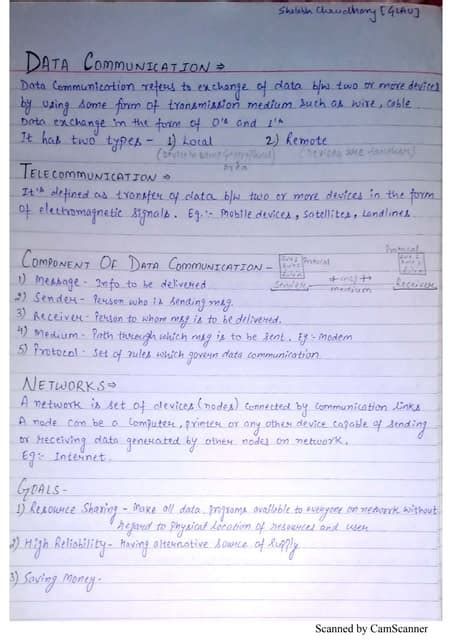 Shobhit Chaudhary [GLAU]
DATA COMMUNICATION ⇒
Data Communication refers to exchange of data b/w two or more devices
by using some form of transmission medium such as wire, cable.
Data exchange in the form of 0's and 1's
It has two types - 1) Local 2) Remote
TELECOMMUNICATION ⇒
It's defined as transfer of data b/w two or more devices in the form
of electromagnetic signals. Eg:- Mobile devices, satellites, landlines
COMPONENT OF DATA COMMUNICATION -
Protocol Protocol
1) Message - Info to be delivered
Sender msg Receiver
medium
2) Sender - Person who is sending msg.
3) Receiver - Person to whom msg is to be delivered.
4) Medium - Path through which msg is to be sent. Eg:- Modem
5) Protocol - Set of rules which govern data communication
NETWORKS ⇒
A network is set of devices (nodes) connected by communication links
A node can be a Computer, printer or any other device capable of sending
or receiving data generated by other nodes on network.
Eg:- Internet.
GOALS -
1) Resource Sharing - Make all data, programs available to everyone on network without
regard to physical location of resources and user
2) High Reliability - Having alternative source of supply
3) Saving Money -
Scanned by CamScanner